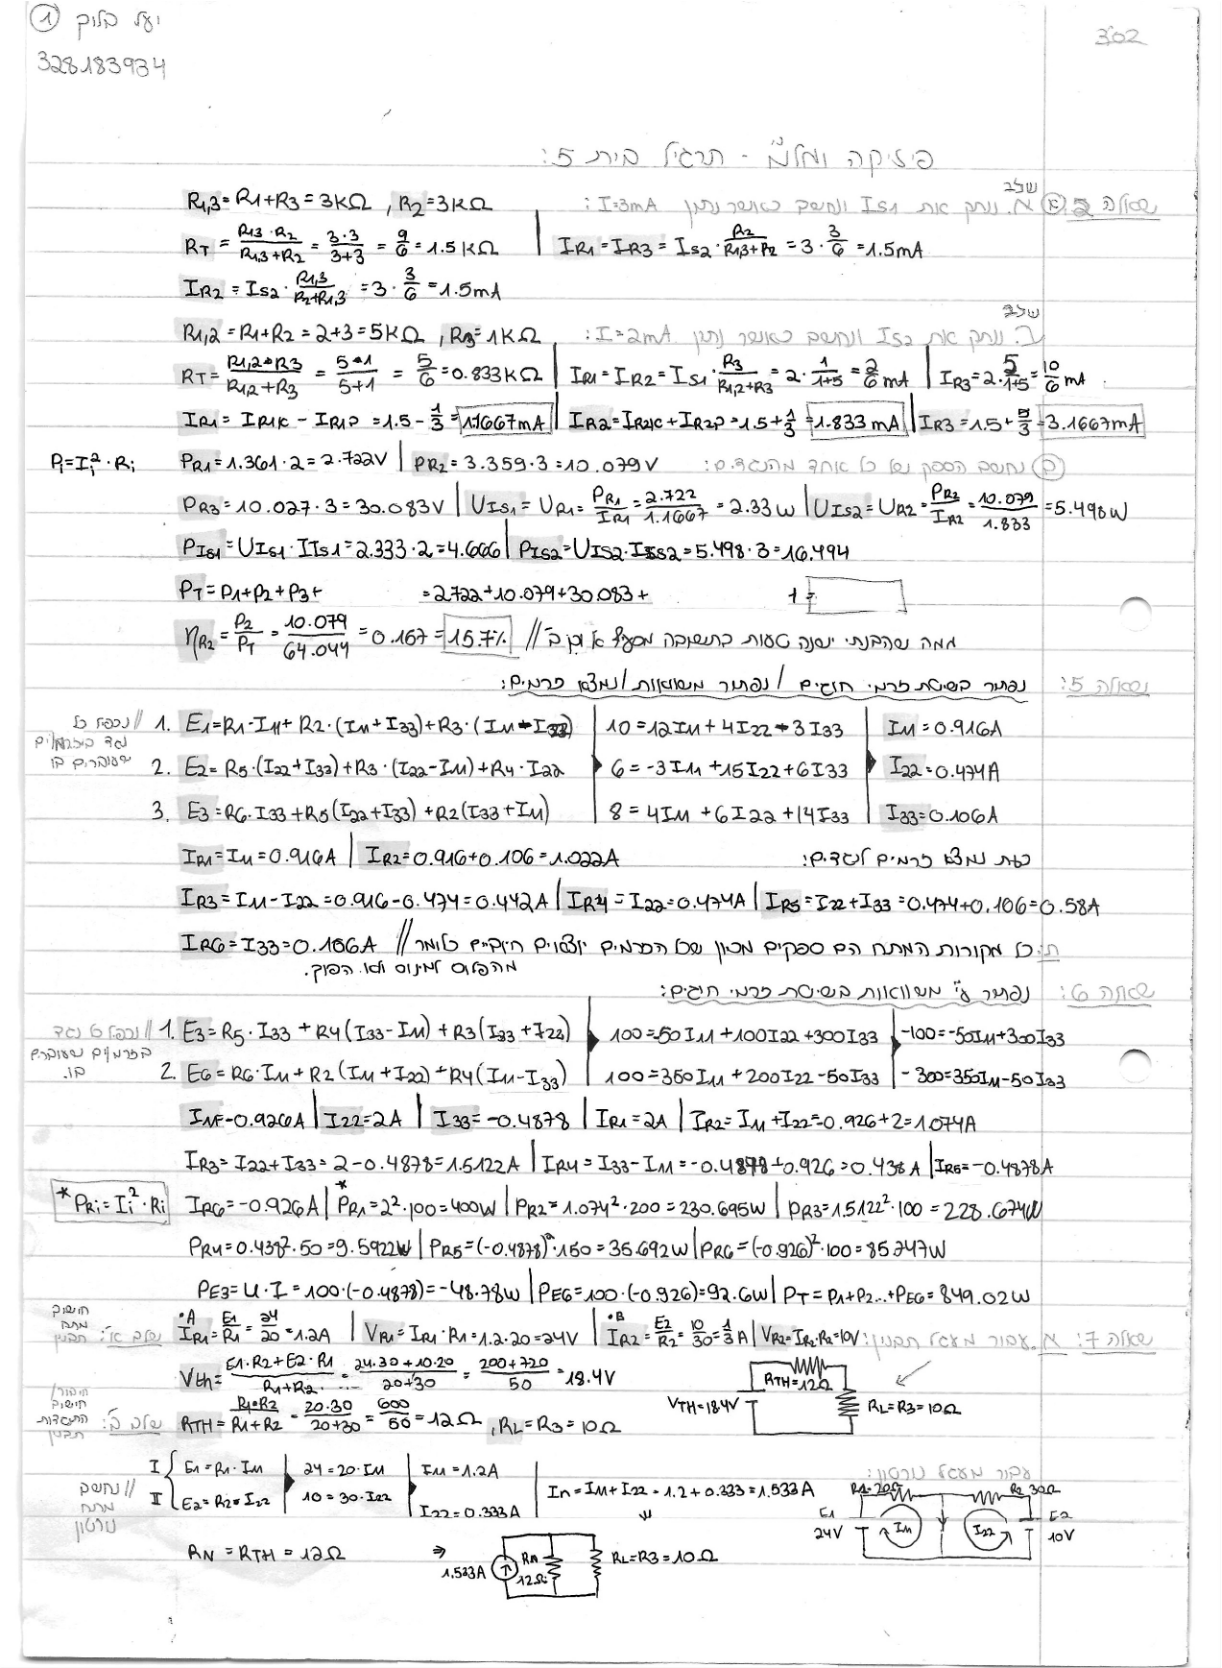 ① יעל בלוך
328183934
302
פיזיקה ומלמ"מ - תרגיל בית 5:
שאלה 2: א) שלב א. ננתק את IS1 ונחשב כאשר נתון I=3mA:
R1,3=R1+R3=3KΩ , R2=3KΩ
RT = R13·R2/R1,3+R2 = 3·3/3+3 = 9/6 = 1.5KΩ | IR1=IR3=IS2·R2/R1,3+R2=3·3/6=1.5mA
IR2=IS2·R1,3/R2+R1,3=3·3/6=1.5mA
שלב ב. ננתק את IS2 ונחשב כאשר נתון I=2mA:
R1,2=R1+R2=2+3=5KΩ , R3=1KΩ
RT=R1,2*R3/R1,2+R3 = 5*1/5+1 = 5/6=0.833KΩ | IR1=IR2=IS1·R3/R1,2+R3=2·1/1+5=2/6mA | IR3=2·5/1+5=10/6mA
IR1=IR1K-IR1P=1.5-1/3=1.1667mA | IR2=IR2K+IR2P=1.5+1/3=1.833mA | IR3=1.5+5/3=3.1667mA
ב) נחשב הספק של כל אחד מהנגדים:
Pi=Ii²·Ri PR1=1.361·2=2.722V | PR2=3.359·3=10.079V
PR3=10.027·3=30.083V | UIS1=UR1=PR1/IR1=2.722/1.1667=2.33W | UIS2=UR2=PR2/IR2=10.079/1.833=5.498W
PIS1=UIS1·IIS1=2.333·2=4.666 | PIS2=UIS2·IIS2=5.498·3=16.494
PT=P1+P2+P3+ =2.722+10.079+30.083+
ηR2=P2/PT=10.079/64.044=0.157=15.7% // ממה שהבנתי ישנה טעות בתשובה מסעיף א וכן ב'
שאלה 5: נפתור בשיטת זרמי חוגים / נפתור משוואות / נמצא זרמים:
1. E1=R1·I11+R2·(I11+I33)+R3·(I11-I33) | 10=12I11+4I22-3I33 | I11=0.916A
// נכפול כל נגד בזרמים שעוברים בו
2. E2=R5·(I22+I33)+R3·(I22-I11)+R4·I22 | 6=-3I11+15I22+6I33 | I22=0.474A
3. E3=R6·I33+R5(I22+I33)+R2(I33+I11) | 8=4I11+6I22+14I33 | I33=0.106A
כעת נמצא זרמים לנגדים:
IR1=I11=0.916A | IR2=0.916+0.106=1.022A
IR3=I11-I22=0.916-0.474=0.442A | IR4=I22=0.474A | IR5=I22+I33=0.474+0.106=0.58A
IR6=I33=0.106A // כל מקורות המתח הם ספקים מכיון שכל הזרמים יוצאים חיוביים כלומר
מהפלוס למינוס ולא הפוך.
שאלה 6: נפתור ע"י משוואות בשיטת זרמי חוגים:
1. E3=R5·I33+R4(I33-I11)+R3(I33+I22) | 100=-50I11+100I22+300I33 | -100=-50I11+300I33
// נכפול כל נגד בזרמים שעוברים בו.
2. E6=R6·I11+R2(I11+I22)+R4(I11-I33) | 100=350I11+200I22-50I33 | -300=350I11-50I33
I11=-0.926A | I22=2A | I33=-0.4878 | IR1=2A | IR2=I11+I22=-0.926+2=1.074A
IR3=I22+I33=2-0.4878=1.5122A | IR4=I33-I11=-0.4878+0.926=0.438A | IR5=-0.4878A
*PRi=Ii²·Ri IR6=-0.926A | *PR1=2²·100=400W | PR2=1.074²·200=230.695W | PR3=1.5122²·100=228.674W
PR4=0.438²·50=9.5922W | PR5=(-0.4878)²·150=35.692W | PR6=(-0.926)²·100=85.747W
PE3=U·I=100·(-0.4878)=-48.78W | PE6=100·(-0.926)=92.6W | PT=P1+P2..+PE6=849.02W
שאלה 7: א. עבור מעגל תבנין:
שלב א': חישוב מתח תבנין
·A IR1=E1/R1=24/20=1.2A | VR1=IR1·R1=1.2·20=24V | ·B IR2=E2/R2=10/30=1/3A | VR2=IR2·R2=10V
Vth=E1·R2+E2·R1/R1+R2=24·30+10·20/20+30=200+720/50=18.4V
שלב ב': חישוב התנגדות תבנין
RTH=R1*R2/R1+R2=20·30/20+30=600/50=12Ω , RL=R3=10Ω
VTH=18.4V RTH=12Ω RL=R3=10Ω
עבור מעגל נורטון:
// נחשב מתח נורטון
I { E1=R1·I11 | 24=20·I11 | I11=1.2A | In=I11+I22=1.2+0.333=1.533A
I { E2=R2·I22 | 10=30·I22 | I22=0.333A
R1=20Ω R2 30Ω
E1 24V I11 I22 E2 10V
RN=RTH=12Ω ⇒ 1.533A Rn 12Ω RL=R3=10Ω